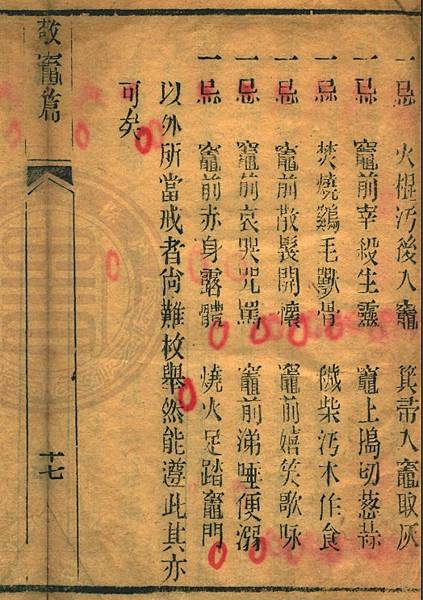 一忌 火棍污後入竈 箕帚入竈取灰
一忌 竈前宰殺生靈 竈上搗切葱蒜
一忌 焚燒鷄毛獸骨 醎柴污木作食
一忌 竈前散髮開懷 竈前嬉笑歌咏
一忌 竈前哀哭咒罵 竈前涕唾便溺
一忌 竈前赤身露體 燒火足踏竈門
以外所當戒者尙難枚舉然能遵此其亦
可矣
敬竈篇
十七